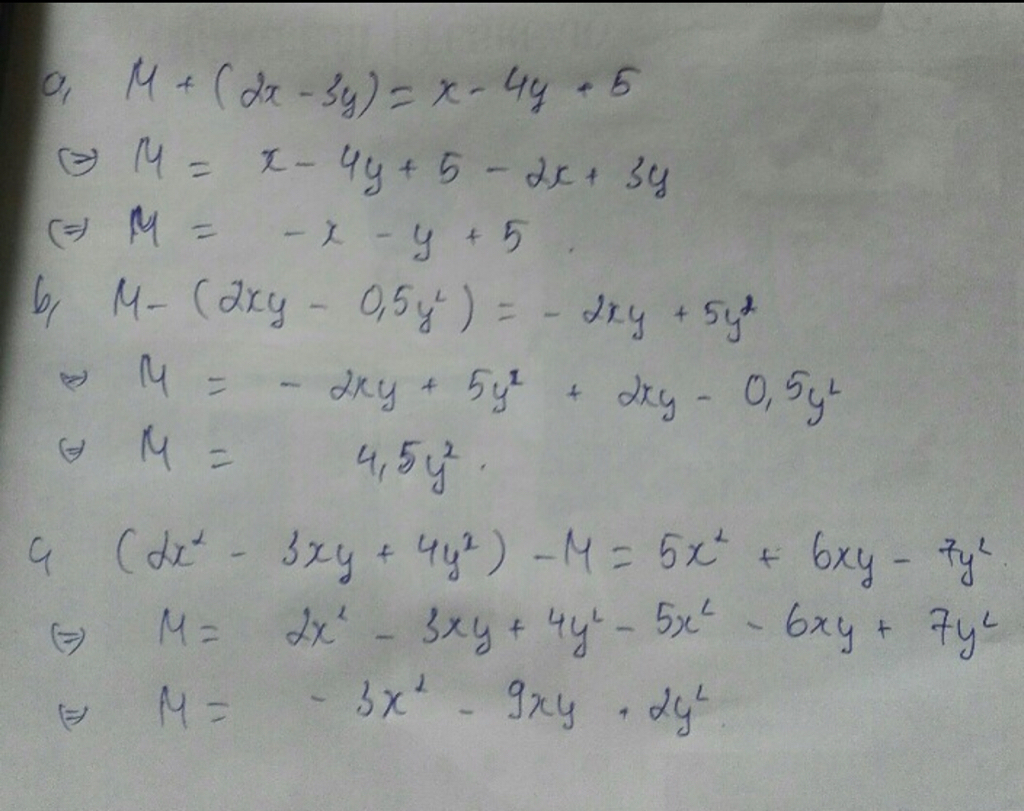 a, M + (2x - 3y) = x - 4y + 5
(=) M = x - 4y + 5 - 2x + 3y
(=) M = - x - y + 5 .
b, M - (2xy - 0,5y²) = - 2xy + 5y²
(=) M = - 2xy + 5y² + 2xy - 0,5y²
(=) M = 4,5y² .
c, (2x² - 3xy + 4y²) - M = 5x² + 6xy - 7y²
(=) M = 2x² - 3xy + 4y² - 5x² - 6xy + 7y²
(=) M = - 3x² - 9xy + 2y² .